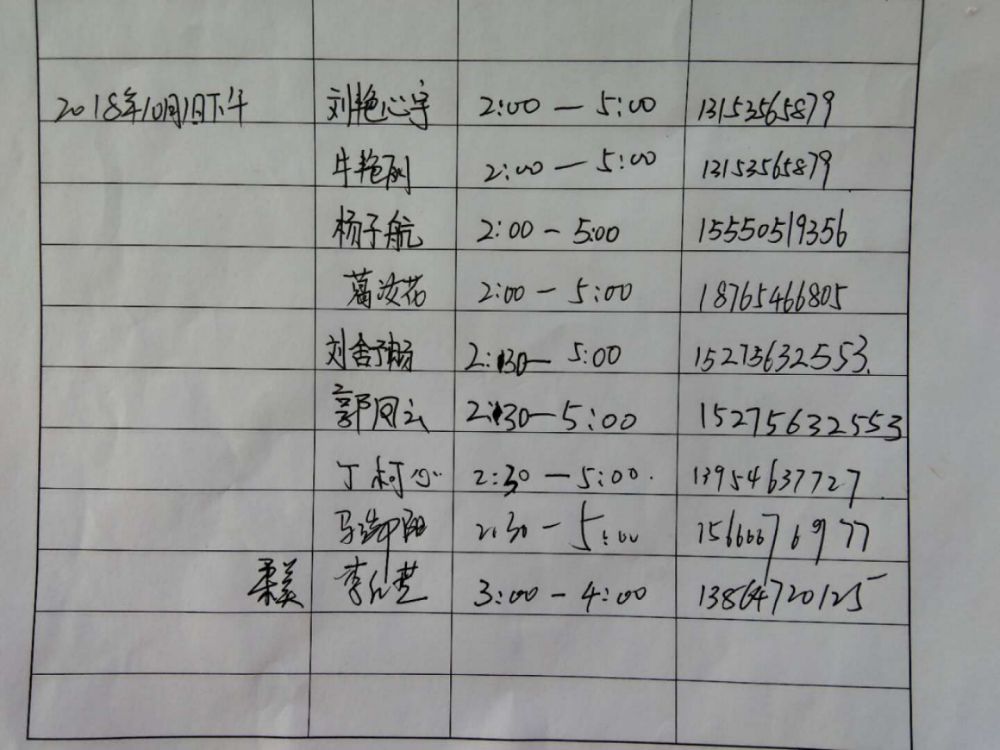 2018年10月1日下午 刘艳心宇 2:00 — 5:00 13153565879
牛艳 2:00 — 5:00 13153565879
杨子航 2:00 — 5:00 15550519356
葛汝花 2:00 — 5:00 18765466805
刘舍予畅 2:30 — 5:00 15275632553
郭凤云 2:30 — 5:00 15275632553
丁柯心 2:30 — 5:00. 13954637727
马 阳 2:30 — 5:00 15666676977
李 芝 3:00 — 4:00 13864720125